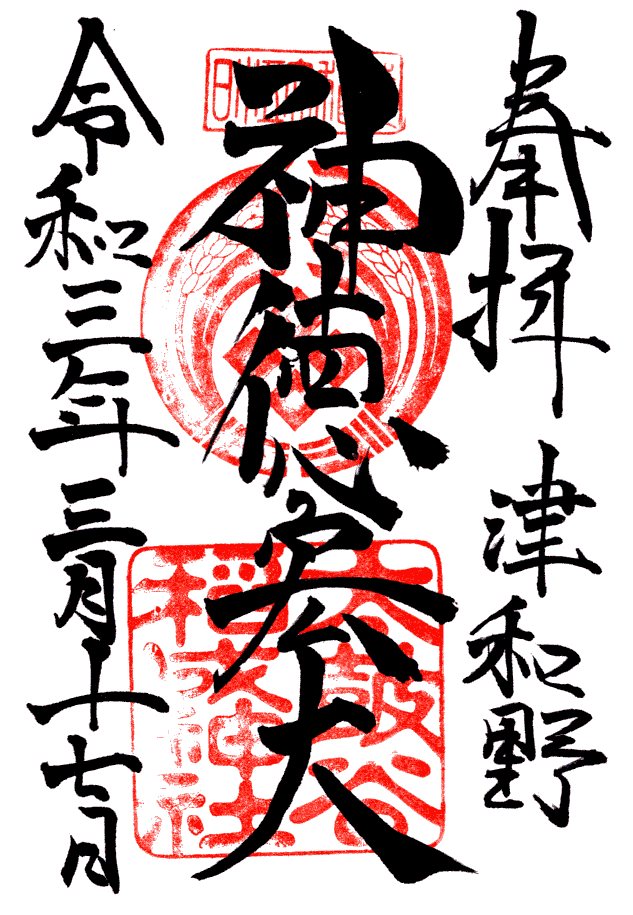 奉拝 津和野
神徳宏大
令和三年三月十七日
太鼓谷
稲成神社